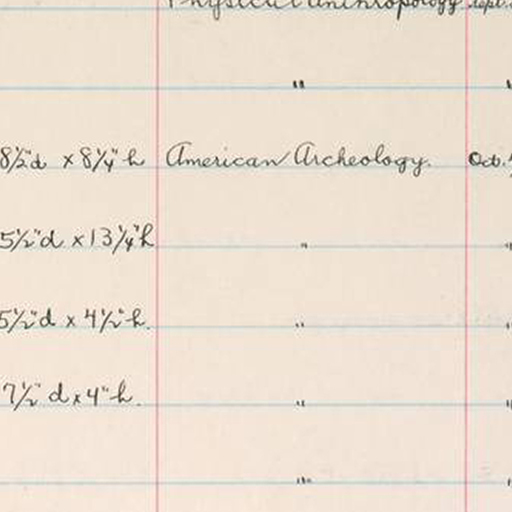 Physical anthropology. Sept.
"
8½"d x 8¼"h American Archeology. Oct.
5½"d x 13¼"h " "
5½"d x 4½"h. " "
7½" d x 4" h. " "
" "